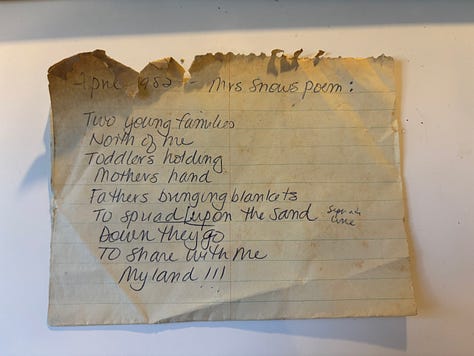 April 1982 - Mrs Snows poem:
Two young families
North of me
Toddlers holding
Mothers hand
Fathers bringing blankets
To spread upon the sand
Down they go
To share with me
My land !!!